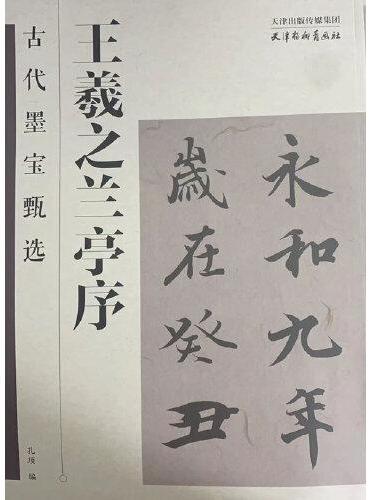 天津出版传媒集团
天津杨柳青画社
王羲之兰亭序
古代墨宝甄选
永和九年
歲在癸丑
孔瑛 编